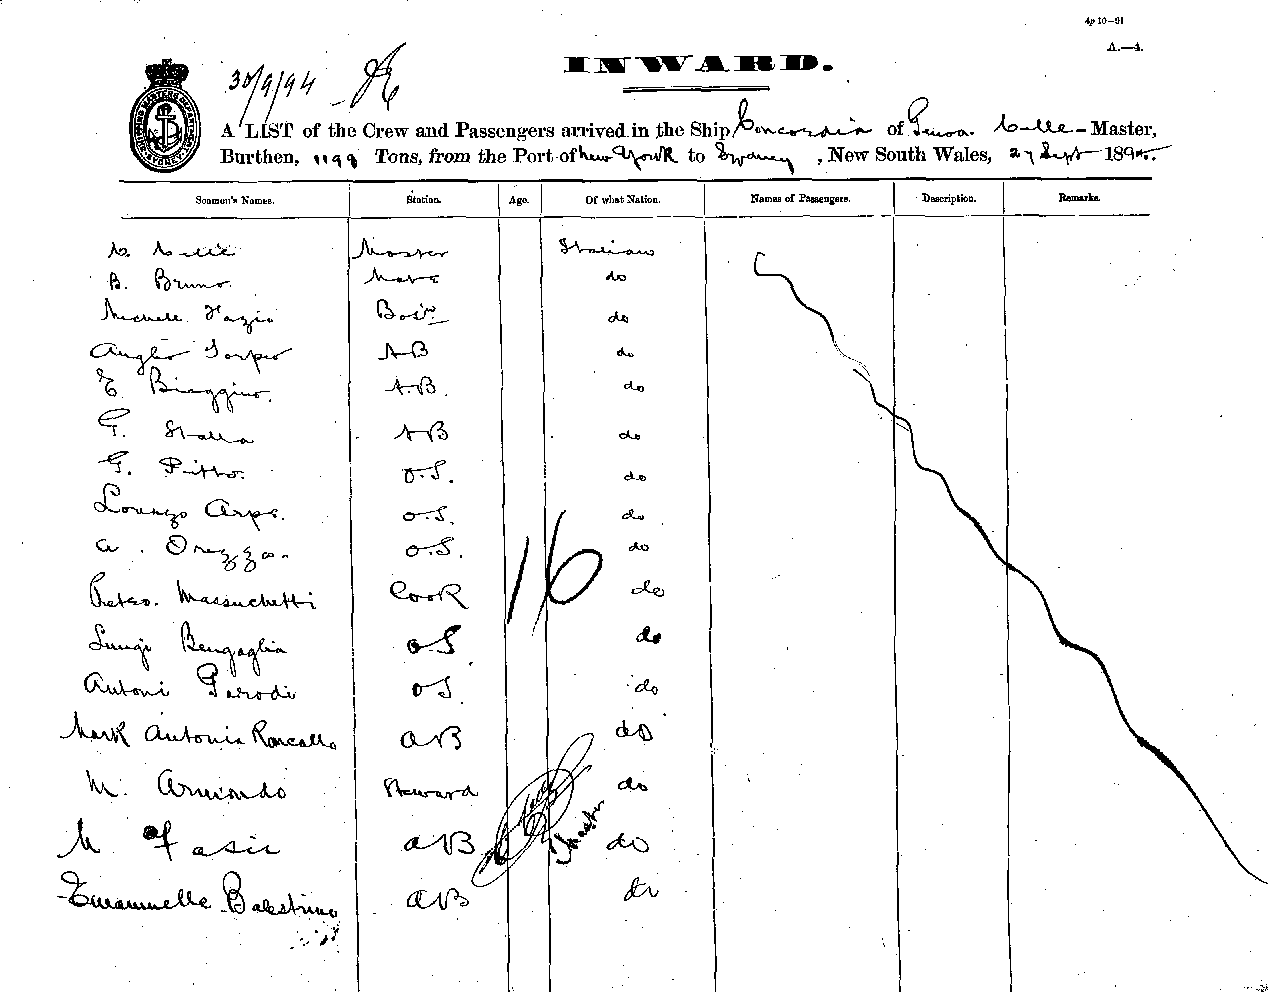 4p 10—91
A.—4.
INWARD.
30/9/94
A LIST of the Crew and Passengers arrived in the Ship Concordia of Genoa. Celle - Master,
Burthen, 1198 Tons, from the Port of New York to Sydney, New South Wales, 27 Sept 1894.
Seamen's Names. Station. Age. Of what Nation. Names of Passengers. Description. Remarks.
Celle Master Italian
B. Bruno. Mate do
Michele Fazio Bosn do
Angelo Torpio AB do
E. Biaggino. A.B. do
G. Stalla AB do
G. Pitto. O.S. do
Lorenzo Arpe. O.S. do
A. Orezzo. O.S. do
Pietro. Massuchetti Cook do
Luigi Bengaglia OS do
Antoni Parodi OS. do
Mark Antonia Roncallo AB do
M. Armondo Steward do
M. Fasie AB do
Emannuelle Balestrino AB do
16
Master